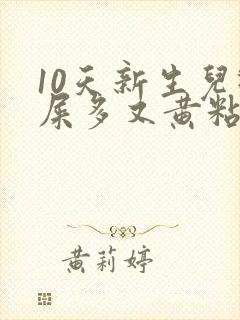 10天新生兒
屎多又黄粘
黄莉婷